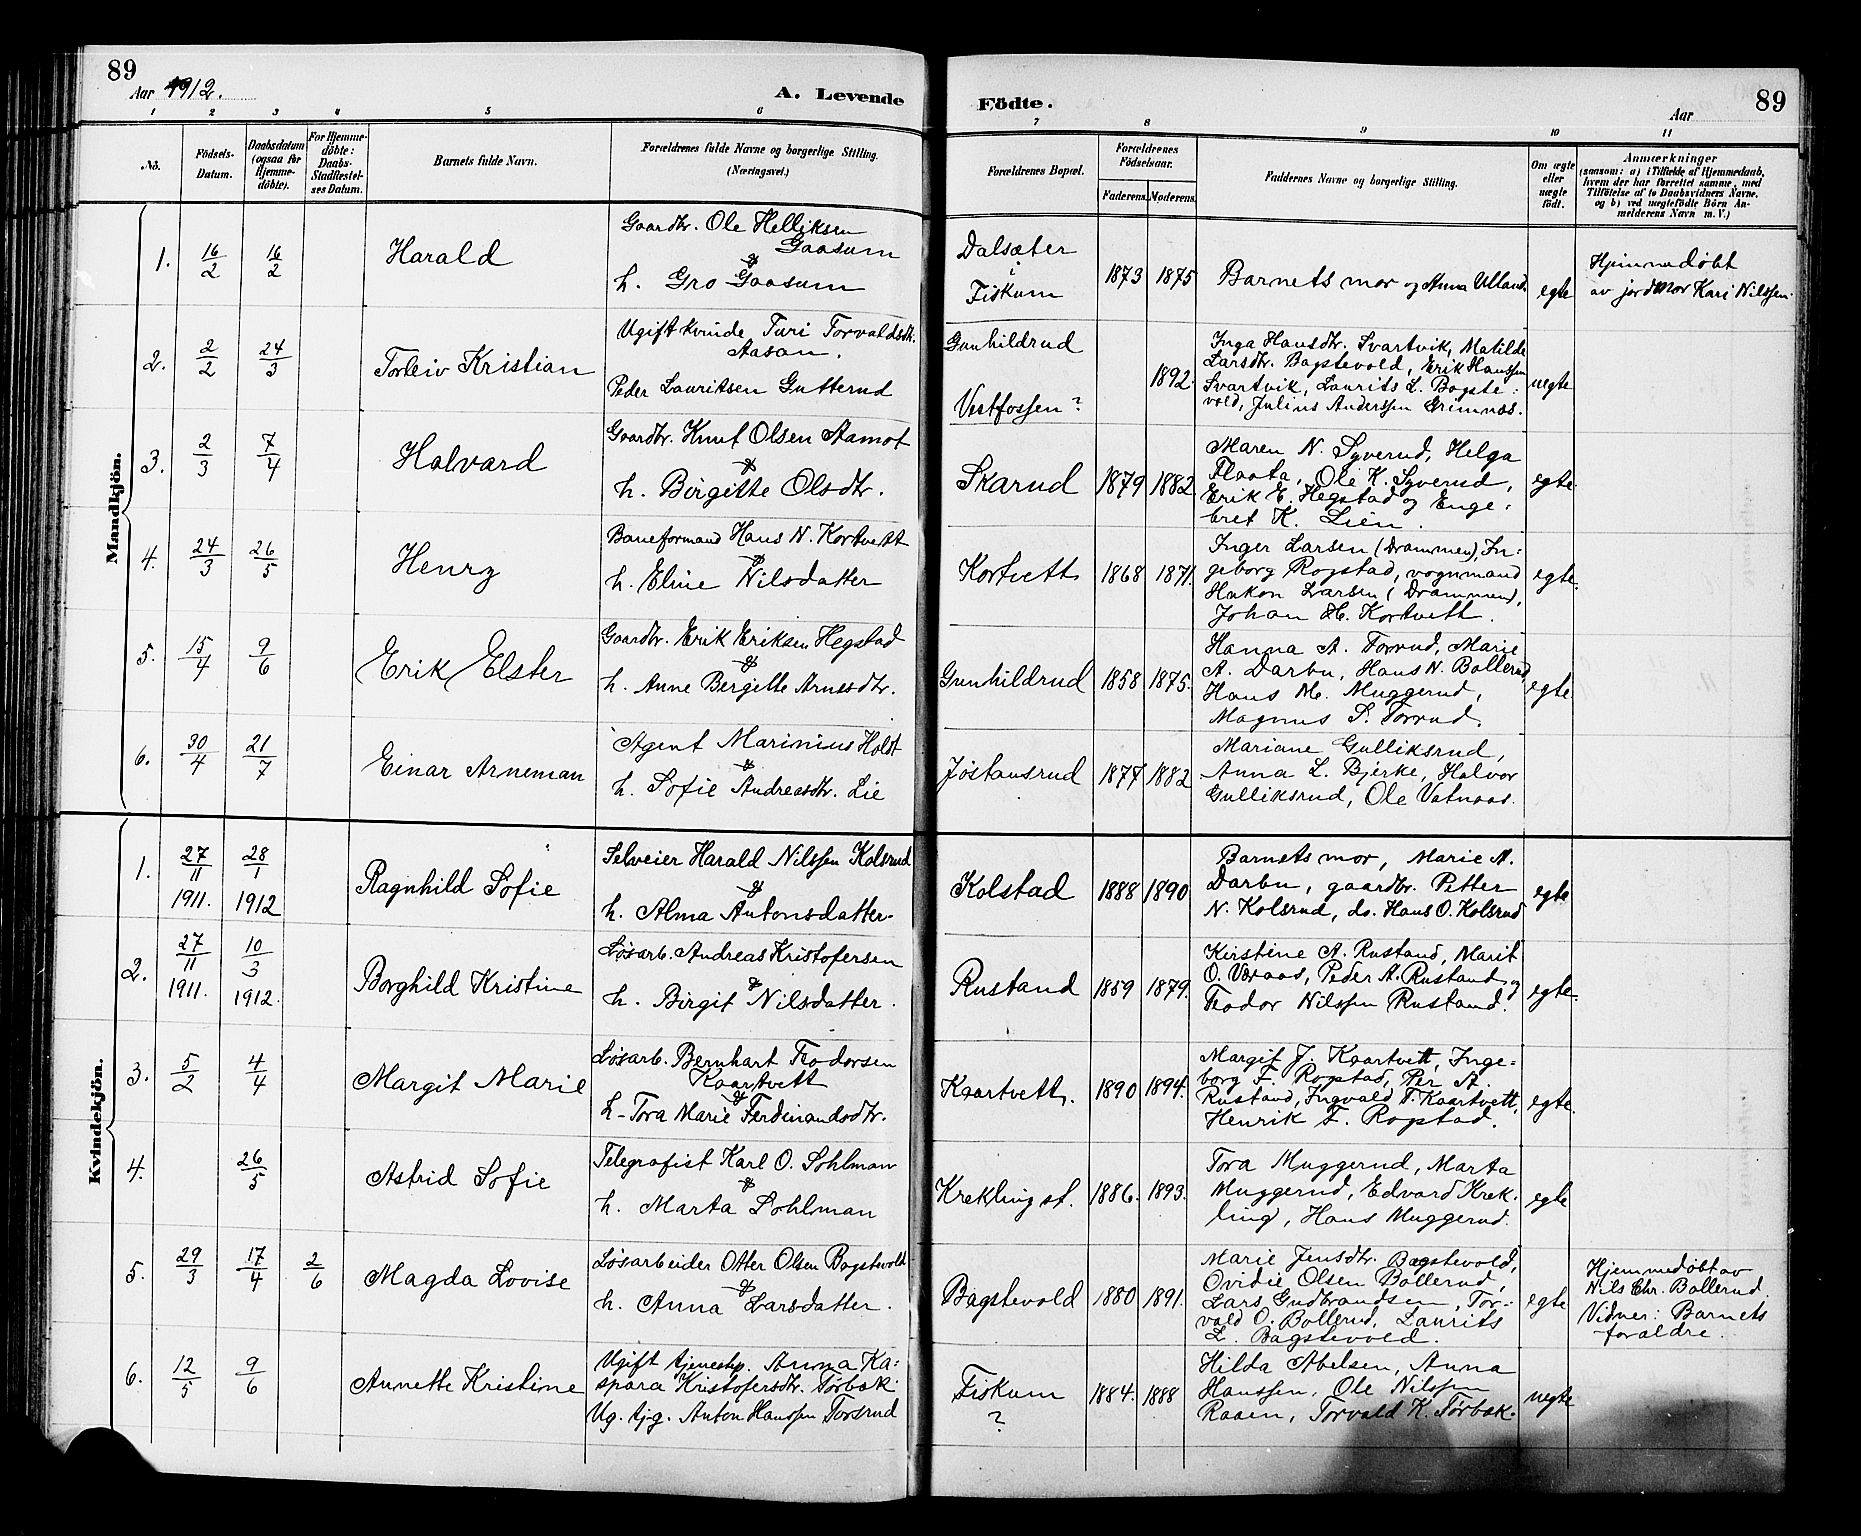 89
Aar 1912.
A. Levende
Födte.
Aar
89
1 2 3 4 5 6 7 8 9 10 11
No.
Födsels-Datum.
Daabsdatum (ogsaa for Hjemme-döbte).
For Hjemme-döbte: Daabs-Stadfæstel-ses Datum.
Barnets fulde Navn.
Forældrenes fulde Navne og borgerlige Stilling. (Næringsvei.)
Forældrenes Bopæl.
Forældrenes Födselsaar.
Faderens. Moderens.
Faddernes Navne og borgerlige Stilling.
Om ægte eller uægte födt.
Anmærkninger
(saasom: a) i Tilfælde af Hjemmedaab,
hvem der har forrettet samme, med
Tilföielse af to Daabsvidners Navne.
og b) ved uægtefödte Börn An-
melderens Navn m. V.)
Mandkjön.
1. 16/2 16/2 Harald
Gaardbr. Ole Helliksen
Gaasum
&
h. Gro Gaasum
Dalsæter
i
Fiskum
1873 1875
Barnets mor og Anna Ulland.
egte
Hjemmedøbt
av jordmor Kari Nilssen.
2. 2/2 24/3 Torleiv Kristian
Ugift kvinde Turi Torvaldsdtr.
Aasan.
Peder Lauritsen Gutterud
Gunhildrud
Vestfossen?
1892.
Inga Hansdtr. Svartvik, Matilde
Larsdtr. Bagstevold, Erik Hanssen
Svartvik, Laurits L. Bagste-
vold, Julius Anderssen Grimnæs.
uegte
3. 2/3 7/4 Halvard
Gaardbr. Knut Olsen Aamot
&
h. Birgitte Olsdtr.
Skarud
1879 1882
Maren N. Syverud, Helga
Flaata, Ole K. Syverud,
Erik E. Hegstad og Enge-
bret K. Lien.
egte
4. 24/3 26/5 Henry
Baneformand Hans N. Kortvett
&
h. Eline Nilsdatter
Kortvett
1868 1871.
Inger Larsen (Drammen), In-
geborg Rogstad, vognmand
Hakon Larsen (Drammen),
Johan H. Kortvett.
egte.
5. 15/4 9/6 Erik Elster
Gaardbr. Erik Eriksen Hegstad
&
h. Anne Bergitte Arnesdtr.
Gunhildrud
1858 1875.
Hanna A. Torrud, Marie
A. Darbu, Hans N. Bollerud,
Hans M. Muggerud,
Magnus S. Torrud.
egte.
6. 30/4 21/7 Einar Arneman
Agent Marinius Holst
&
h. Sofie Andreasdtr. Lie
Jøstansrud
1877 1882
Mariane Gulliksrud,
Anna L. Bjerke, Halvor
Gulliksrud, Ole Vatnaas.
Kvindekjön.
1. 27/11 1911. 28/1 1912 Ragnhild Sofie
Selveier Harald Nilssen Kolsrud
&
h. Alma Antonsdatter.
Kolstad
1888 1890
Barnets mor, Marie A.
Darbu, gaardbr. Petter
N. Kolsrud, do. Hans O. Kolsrud
egte
2. 27/11 1911. 10/3 1912. Borghild Kristine
Løsarb. Andreas Kristofersen
&
h. Birgit Nilsdatter.
Rustand
1859 1879.
Kirstine A. Rustand, Marit
O. Vøraas, Peder A. Rustand og
Teodor Nilssen Rustand.
egte.
3. 5/2 4/4 Margit Marie
Løsarb. Bernhart Teodorsen
Kaartvett
&
h. Tora Marie Ferdinandsdtr.
Kaartvett.
1890 1894.
Margit J. Kaartvett, Inge-
borg F. Rogstad, Per A.
Rustand, Ingvald T. Kaartvett,
Henrik F. Rogstad.
egte.
4. 26/5 Astrid Sofie
Telegrafist Karl O. Sohlman
&
h. Marta Sohlman
Krekling st.
1886. 1893.
Tora Muggerud, Marta
Muggerud, Edvard Krek-
ling, Hans Muggerud.
egte
5. 29/3 17/4 2/6 Magda Lovise
Løsarbeider Otter Olsen Bagstevold
&
h. Anna Larsdatter.
Bagstevold
1880 1891.
Marie Jensdtr. Bagstevold,
Ovidie Olsen Bollerud,
Lars Gudbrandsen, Tor-
vald O. Bollerud, Laurits
L. Bagstevold.
egte
Hjemmedøbt av
Nils Chr. Bollerud.
Vidner: Barnets
forældre.
6. 12/5 9/6 Annette Kristine
Ugift tjenestep. Anna Ka-
spara Kristofersdtr. Tørbak.
Ug. tj.g. Anton Hanssen Torsrud
Fiskum
?
1884. 1888
Hilda Abelsen, Anna
Hanssen, Ole Nilssen
Raaen, Torvald K. Tørbak.
uegte